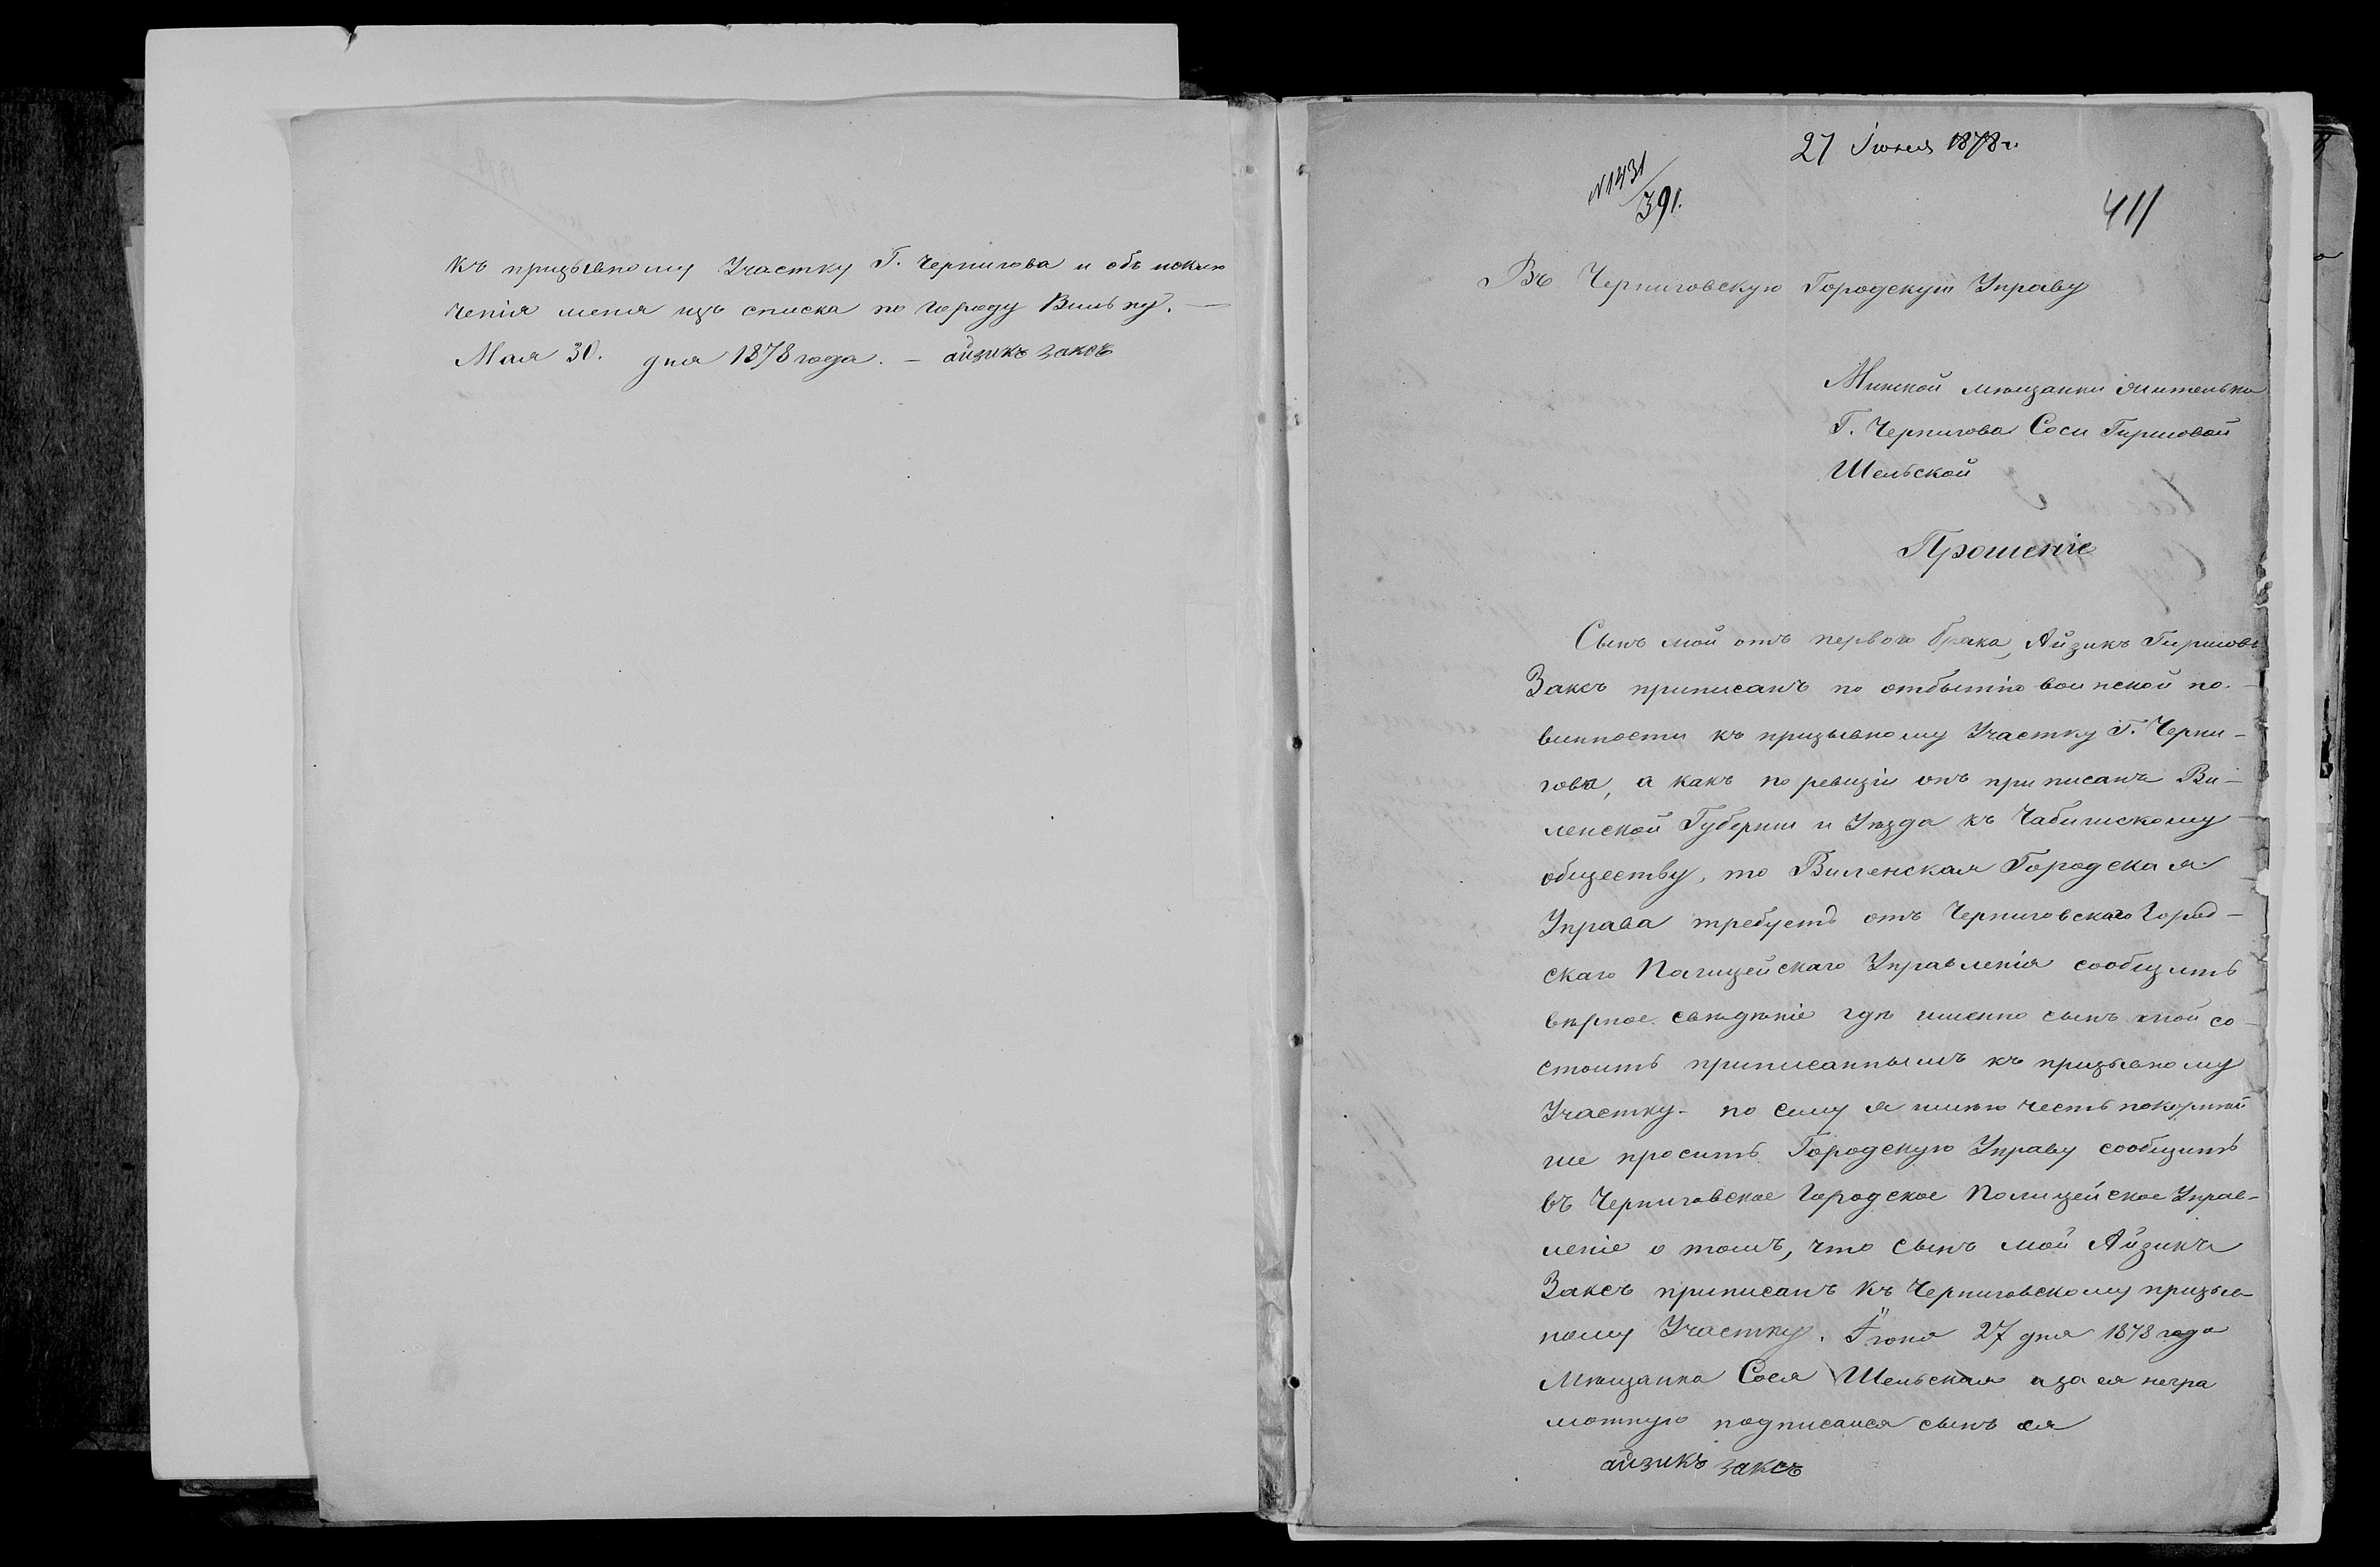 къ призывному Участку Г. Чернигова и объ исклю
ченія меня изъ списка по городу Вильну. —
Мая 30. дня 1878 года. — айзикъ заксъ
27 Іюня 1878 г.
№ 1431/391.
411
Въ Черниговскую Городскую Управу
Минской мѣщанки жительки
Г. Чернигова Соси Гиршовой
Шельской
Прошеніе
Сынъ мой отъ перваго брака, Айзикъ Гиршовъ
Заксъ приписанъ по отбытію воинской по-
винности къ призывному Участку Г. Черни-
гова, а какъ по ревизіи онъ приписанъ Ви-
ленской Губерніи и Уѣзда къ Чабишскому
обществу, то Виленская Городская
Управа требуетъ отъ Черниговскаго Город-
скаго Полицейскаго Управленія сообщить
вѣрное свѣдѣніе гдѣ именно сынъ мой со-
стоитъ приписаннымъ къ призывному
Участку - по сему я имѣю честь покорнѣй
ше просить Городскую Управу сообщить
въ Черниговское Городское Полицейское Управ-
леніе о томъ, что сынъ мой Айзикъ
Заксъ приписанъ къ Черниговскому призыв
ному Участку. Іюня 27 дня 1878 года
Мѣщанка Сося Шельская а за ея негра
мотную подписался сынъ ея
айзикъ заксъ